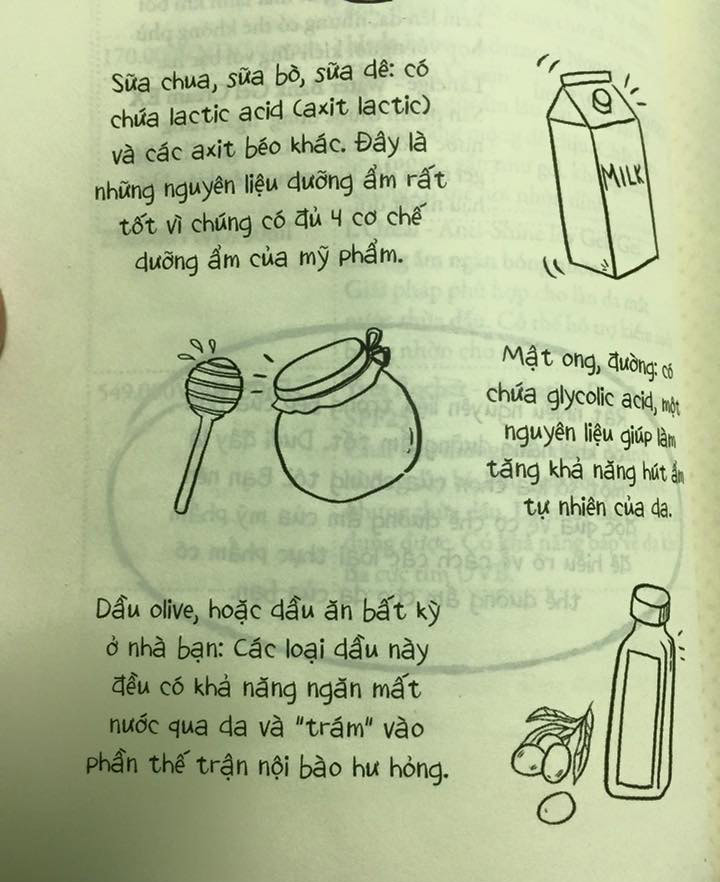 Sữa chua, sữa bò, sữa dê: có
chứa lactic acid (axit lactic)
và các axit béo khác. Đây là
những nguyên liệu dưỡng ẩm rất
tốt vì chúng có đủ 4 cơ chế
dưỡng ẩm của mỹ phẩm.
MILK
Mật ong, đường: có
chứa glycolic acid, một
nguyên liệu giúp làm
tăng khả năng hút ẩm
tự nhiên của da.
Dầu olive, hoặc dầu ăn bất kỳ
ở nhà bạn: Các loại dầu này
đều có khả năng ngăn mất
nước qua da và "trám" vào
phần thế trận nội bào hư hỏng.